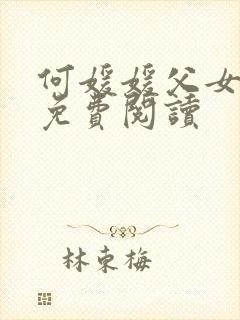 何媛媛父女
免費閱讀
林東梅